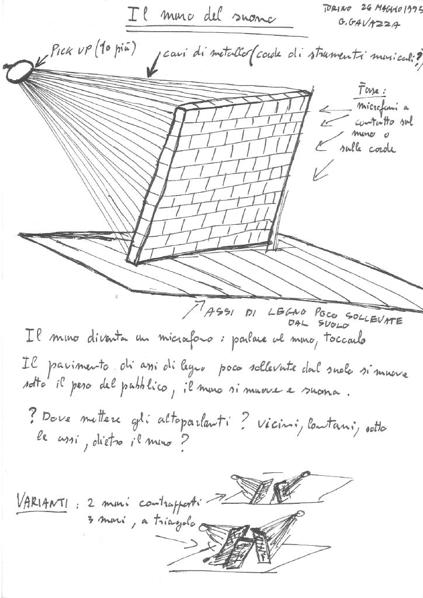 Il muro del suono
TORINO 26 MAGGIO 1995
G. GAVAZZA
PICK UP (10 più)
cavi di metallo (corde di strumenti musicali?)
Forse:
microfoni a
contatto sul
muro o
sulle corde
ASSI DI LEGNO POCO SOLLEVATE
DAL SUOLO
Il muro diventa un microfono: parlare al muro, toccarlo
Il pavimento di assi di legno poco sollevate dal suolo si muove
sotto il peso del pubblico, il muro si muove e suona.
? Dove mettere gli altoparlanti? vicini, lontani, sotto
le assi, dietro il muro?
VARIANTI: 2 muri contrapposti
3 muri, a triangolo